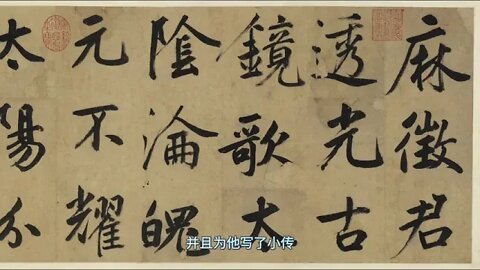 麻徵君
透光古
鏡歌太
陰淪魄
元不耀
太陽分
并且为他写了小传